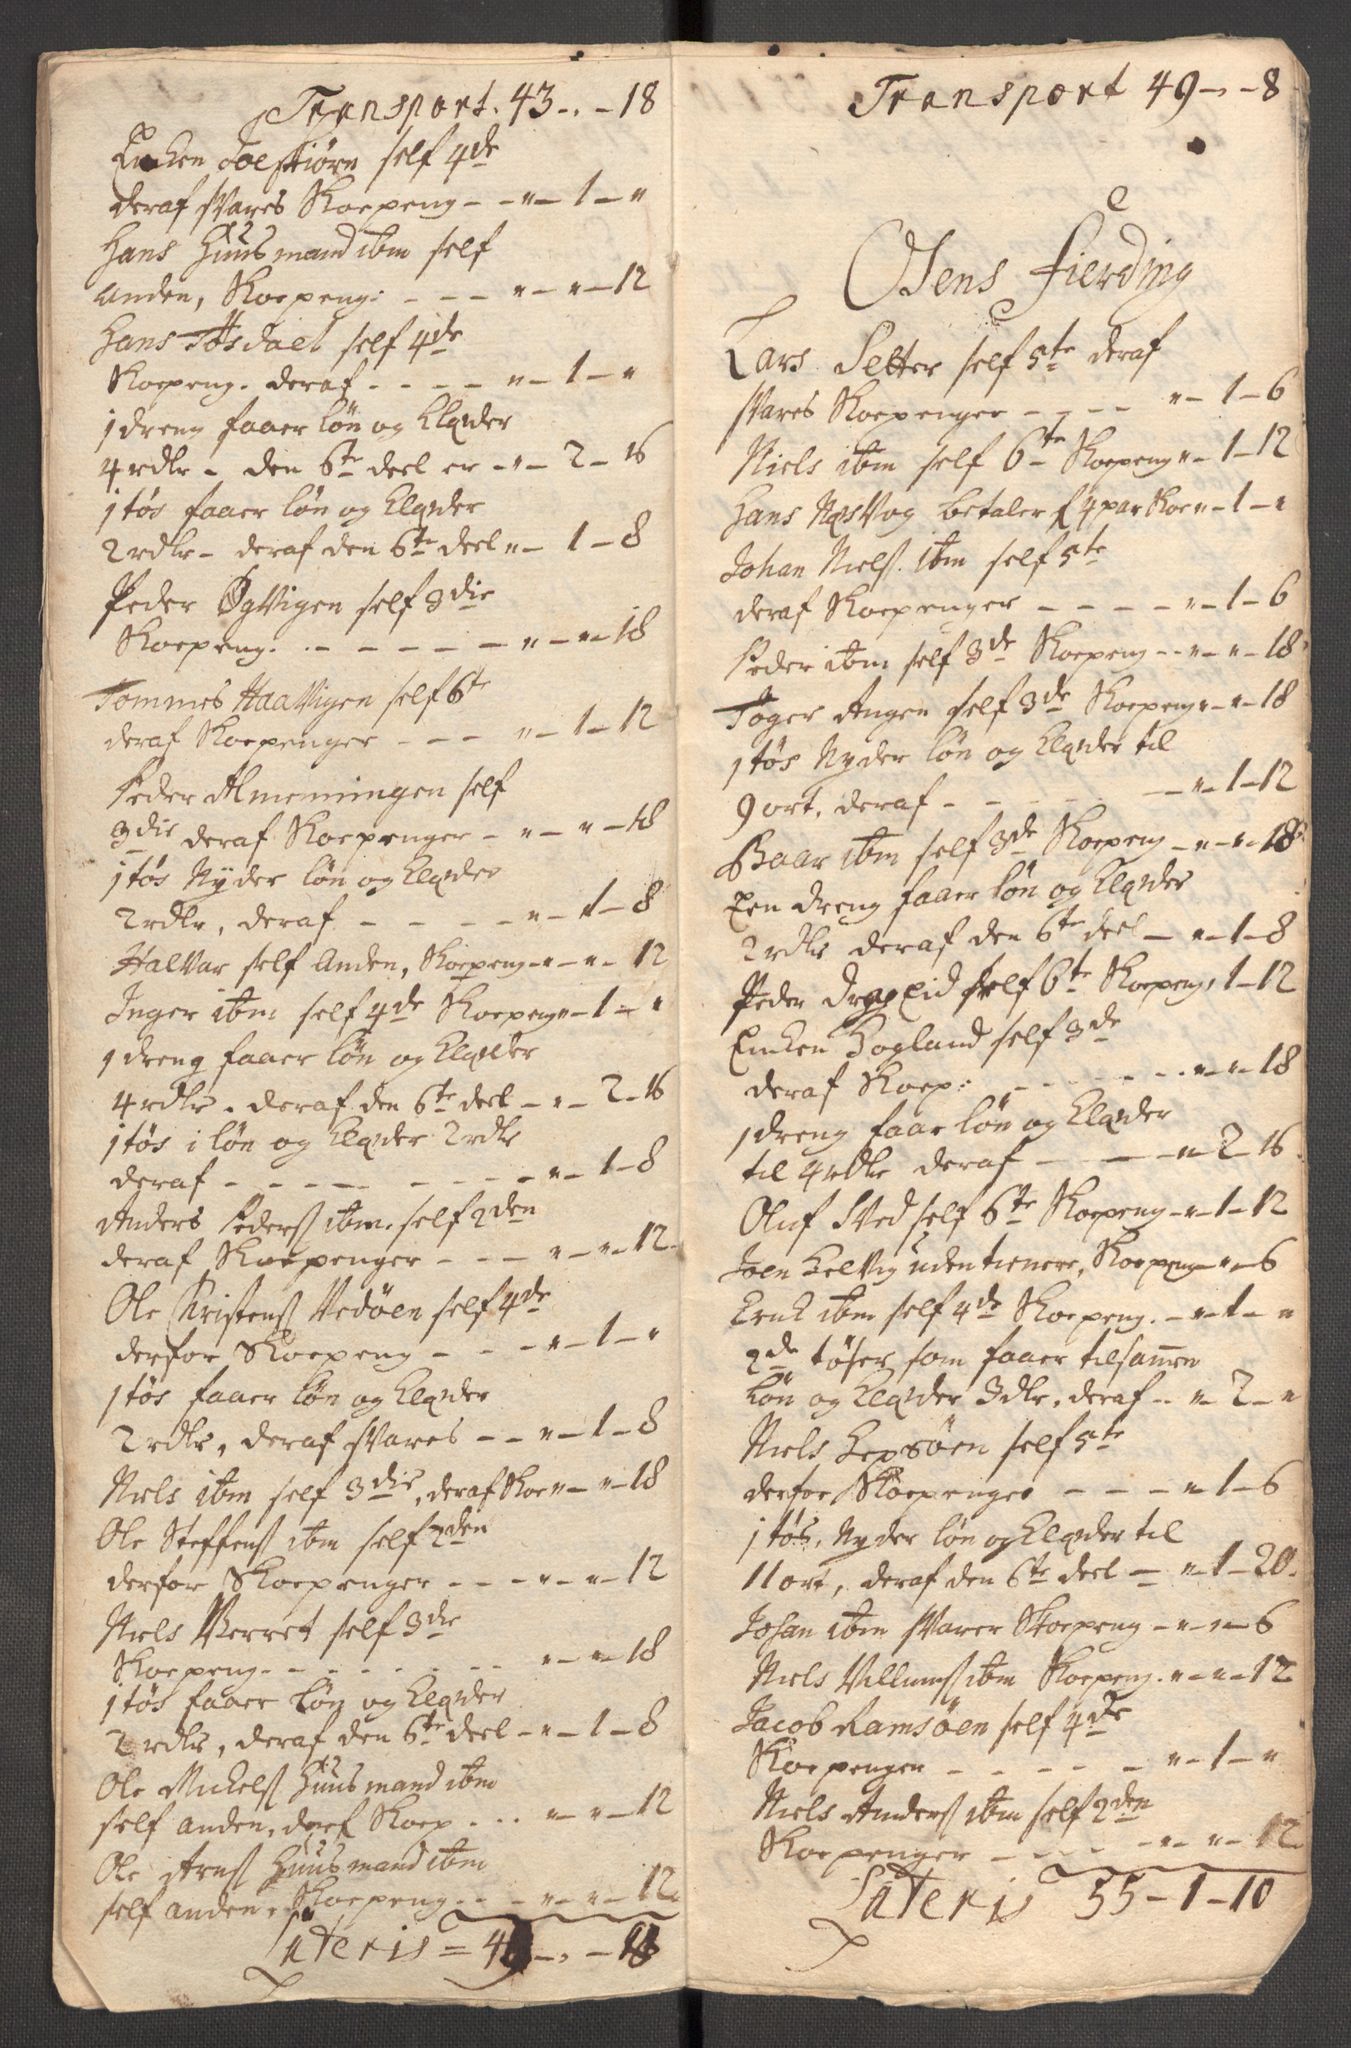 Transport. 43 - . - 18
Encken Toelstiørn self 4de
deraf svares Skoepeng - - " - 1 - "
Hans Huusmand ibm self
anden, Skoepeng: - - - " - " - 12
Hans Tøsdael self 4de
Skoepeng. deraf - - - - " - 1 - "
1 dreng faaer løn og Klæder
4 rdlr - den 6te deel er - " - 2 - 16
1 tøs faaer løn og Klæder
2 rdlr - deraf den 6te deel " - 1 - 8
Peder Øgvigen self 3die
Skoepeng. - - - - - " - " - 18
Tommes Haavigen self 6te
deraf Skoepenger - - - " - 1 - 12
Peder Almemingen self
3die deraf Skoepenger - " - " - 18
1 tøs Nyder løn og Klæder
2 rdlr, deraf - - - - " - 1 - 8
Halvar self anden, Skoepeng - " - " - 12
Inger ibm self 4de Skoepeng " - 1 - "
1 dreng faaer løn og Klæder
4 rdlr - deraf den 6te deel - " - 2 - 16
1 tøs i løn og Klæder 2 rdlr
deraf - - - - - - - - " - 1 - 8
Anders Peders ibm. self 2den
deraf Skoepenger - - - " - " - 12.
Ole Kristens Vedøen self 4de
derfor Skoepeng - - - " - 1 - "
1 tøs faaer løn og Klæder
2 rdlr, deraf svares - - " - 1 - 8
Niels ibm self 3die, deraf Skoe " - " - 18
Ole Steffens ibm self 2den
derfor Skoepenger - - - " - " - 12
Niels Verret self 3die
Skoepeng - - - - - - - " - " - 18
1 tøs faaer løn og Klæder
2 rdlr, deraf den 6te deel - " - 1 - 8
Ole Mickels Huusmand ibm
self anden, deraf Skoep - . . " - " - 12
Ole Arns Huusmand ibm
self anden, Skoepeng - . - " - " - 12.
Lateris =
Transport 49 - . - 8
Osens Fierding
Lars Setter self 5te deraf
svares Skoepenger - - - - " - 1 - 6
Niels ibm self 6te Skoepeng " - 1 - 12
Hans Næsvog betaler f 4 par Skoe " - 1 - "
Johan Niels. ibm self 5te
deraf Skoepenger - - - - - " - 1 - 6
Peder ibm self 3de Skoepeng - - " - " - 18
Toger Angen self 3de Skoepeng " - " - 18
1 tøs Nyder løn og Klæder til
9 ort, deraf - - - - - - " - 1 - 12
Baar ibm self 3de Skoepeng - " - " - 18
Een dreng faaer løn og Klæder
2 rdlr deraf den 6te deel - " - 1 - 8
Peder Drageid self 6te Skoepeng, 1 - 12
Encken Hogland self 3de
deraf Skoep: - - - - - . . " - " - 18
1 dreng faar løn og Klæder
til 4 rdlr deraf - - - " - 2 - 16.
Oluf Sved self 6te Skoepeng - " - 1 - 12
Joen Selvig uden tienere, Skoepeng " - " - 6
Erick ibm self 4de Skoepeng. - " - 1 - "
2de tøser som faaer tilsamen
løn og Klæder 3 dlr. deraf . . " - 2 - "
Niels Sepsøen self 5te
derfor Skoepenger - - - " - 1 - 6
1 tøs, Nyder løn og Klæder til
11 ort, deraf den 6te deel - " - 1 - 20.
Johan ibm svarer Skoepeng - " - " - 6
Niels Villums ibm Skoepeng. " - " - 12
Jacob Ramsøen self 4de
Skoepengen - - - - - " - 1 - "
Niels Anders ibm self 2den
Skoepenger - - - - " - " - 12
Lateris 55 - 1 - 10